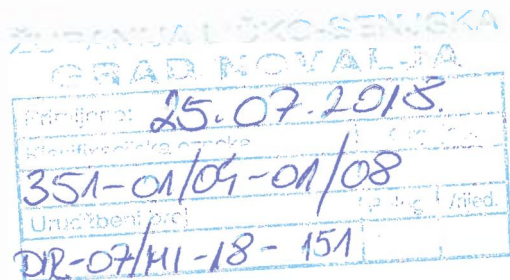 ŽUPANIJA LIČKO-SENJSKA
GRAD NOVALJA
Primljeno: 25.07.2018.
Klasifikacijska oznaka
351-01/04-01/08
Urudžbeni broj
DIR-07/MI-18-151